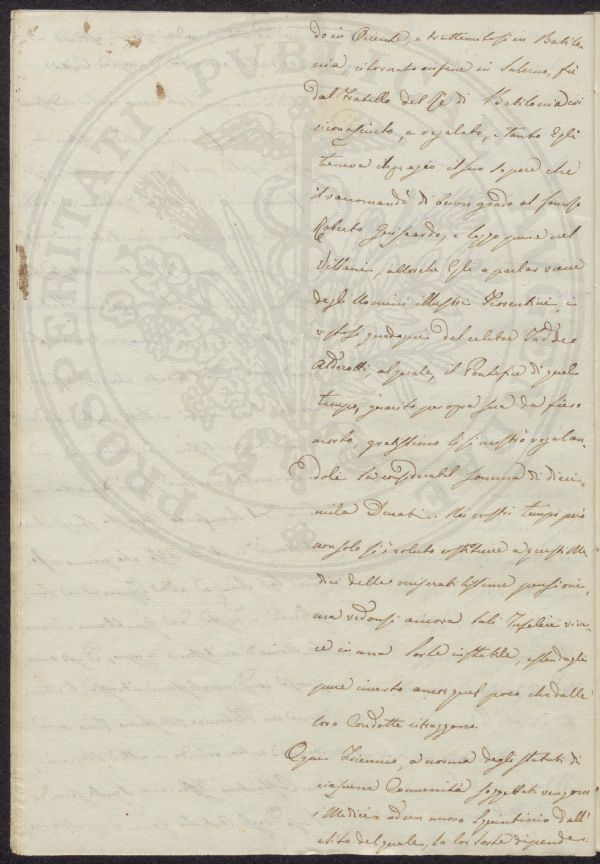 do in Oriente, e trattenutosi in Babilo-
nia, ritornato infine in Salerno, fù
dal Fratello del Re di Babilonia ivi
riconosciuto, e regalato, e tanto Egli
teneva in pregio il suo sapere che
il raccomandò di buon grado al famoso
Roberto Guiscardo, e leggo pure nel
Villani, allorchè Egli a parlar viene
degli Uomini Illustri Fiorentini, i
del celebre Taddeo
Alderotti, al quale, il Pontefice di quel
tempo, guarito per opra sua da fiero
morbo, gratissimo si mostrò regalan-
dole la considerabil somma di dieci-
mila Ducati. Nei nostri tempi però
non solo si è voluto costituire a questi Me-
dici delle miserabilissime pensioni,
ma vedonsi ancora tali Infelici vive-
re in una sorte instabile, essendogli
pure incerto ancor quel poco che dalle
loro Condotte ritraggono.
Ogni Triennio, a norma degli Statuti di
ciascuna Comunità soggettati vengono
i Medici ad un nuovo Squittinio dall'
esito del quale, la lor sorte dipende.
PROSPERITATI PUBLICAE